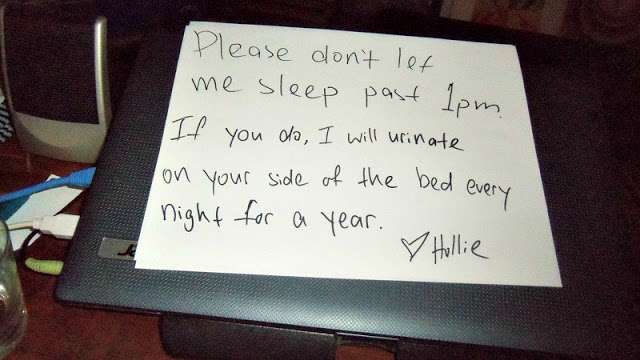 Please don't let
me sleep past 1pm.
If you do, I will urinate
on your side of the bed every
night for a year.
♡ Hollie